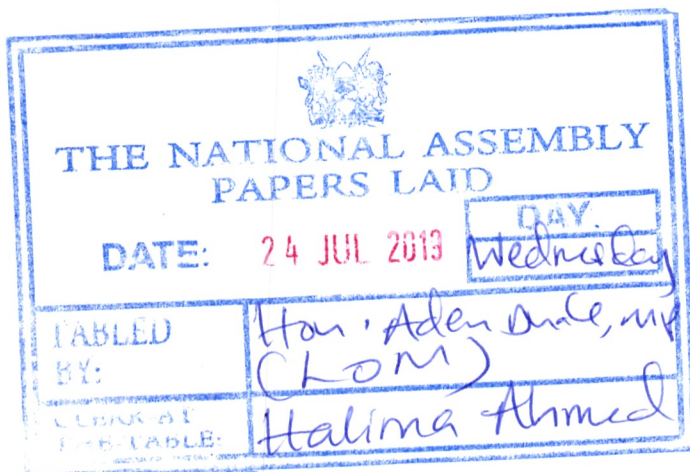 THE NATIONAL ASSEMBLY
PAPERS LAID
DAY.
DATE: 24 JUL 2013 Wednesday
TABLED BY: Hon. Aden Duale, MP
(LOM)
CLERK AT THE-TABLE: Halima Ahmed